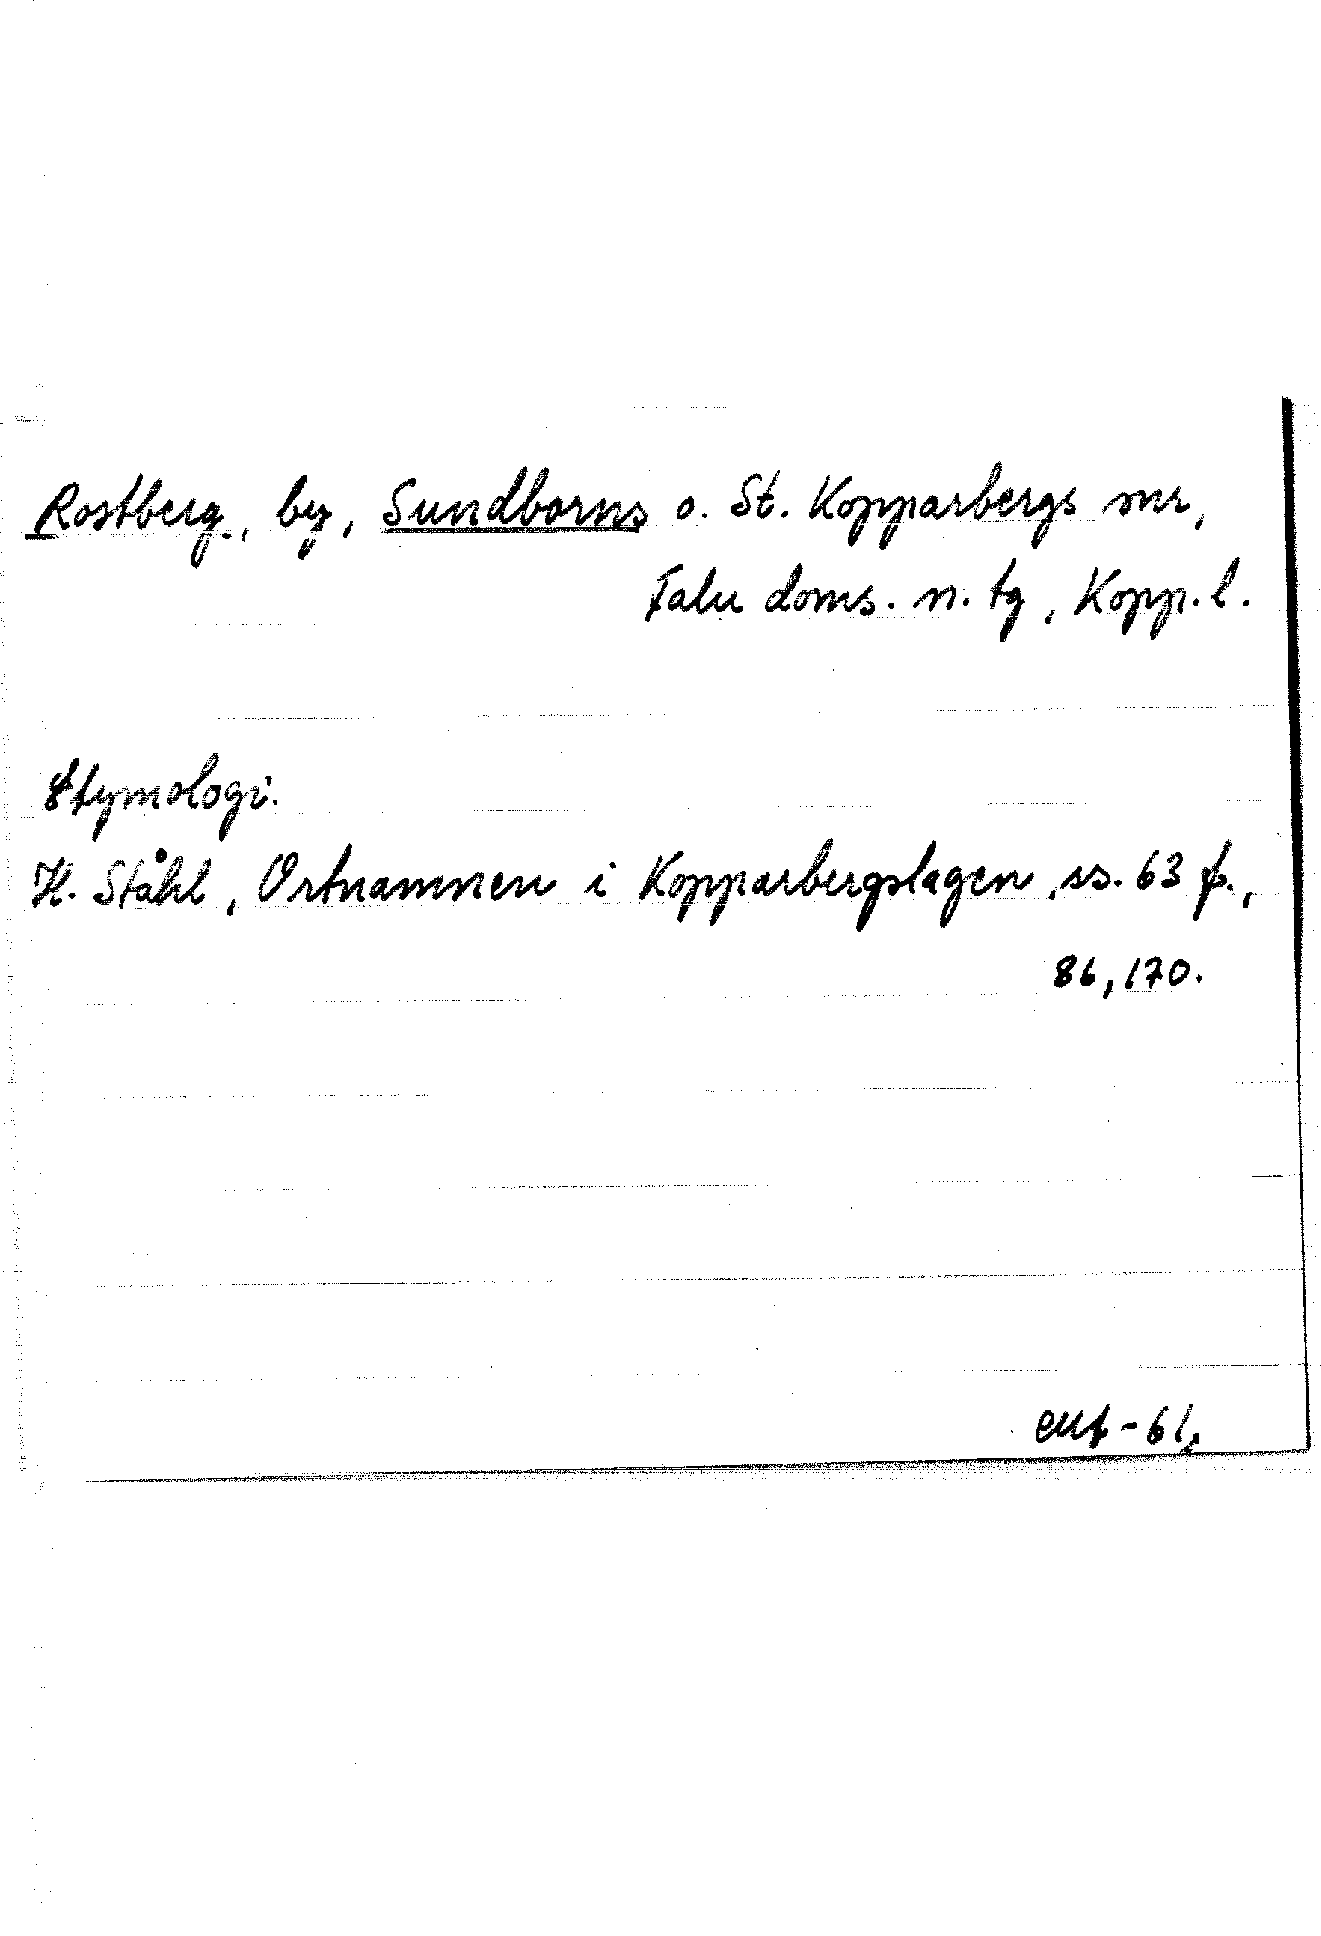 Rostberg, by, Sundborns o. St. Kopparbergs snr,
Falu doms. n. tg, Kopp. l.
Etymologi.
H. Ståhl, Ortnamnen i Kopparbergslagen, ss. 63 f.,
86, 170.
-61.